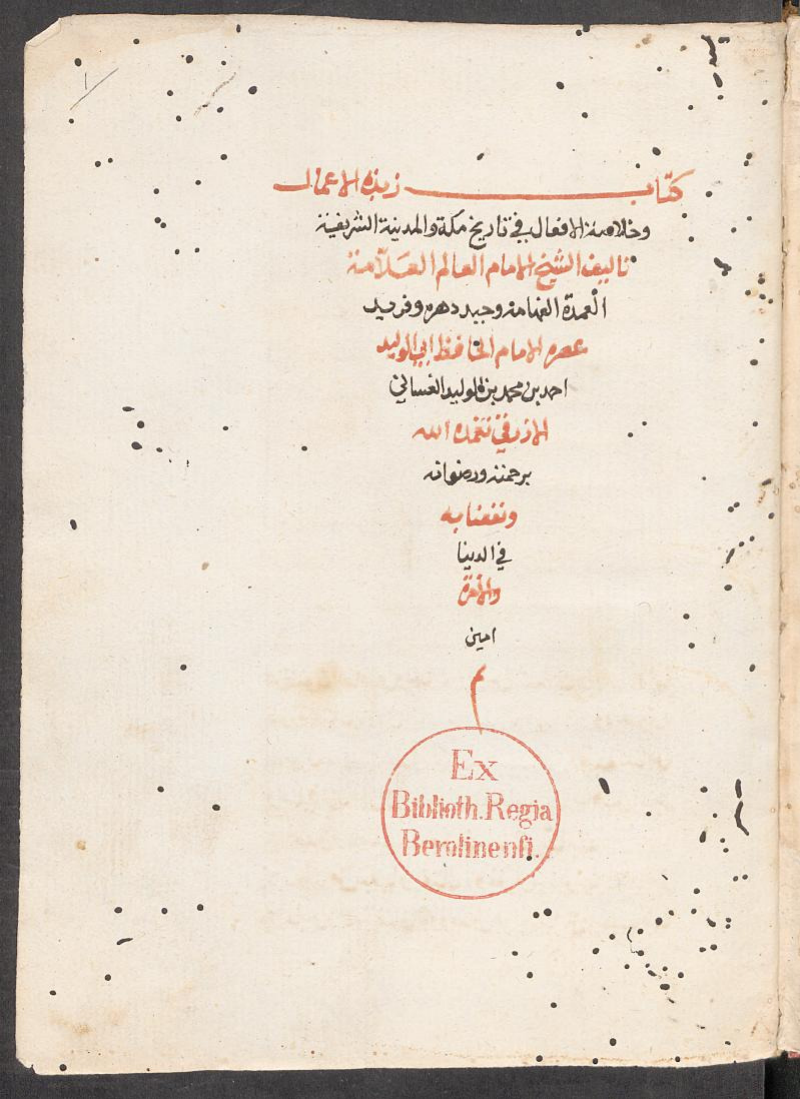 ١
كتاب زبدة الاعمال
وخلاصة الافعال في تاريخ مكة والمدينة الشريفة
تاليف الشيخ الامام العالم العلامة
العمدة الفهامة وحيد دهره وفريد
عصره الامام الحافظ ابي الوليد
احمد بن محمد بن الوليد الغساني
الازرقي تغمده الله
برحمته ورضوانه
ونفعنا به
في الدنيا
والاخرة
امين
م
Ex
Biblioth. Regia
Berolinensi.